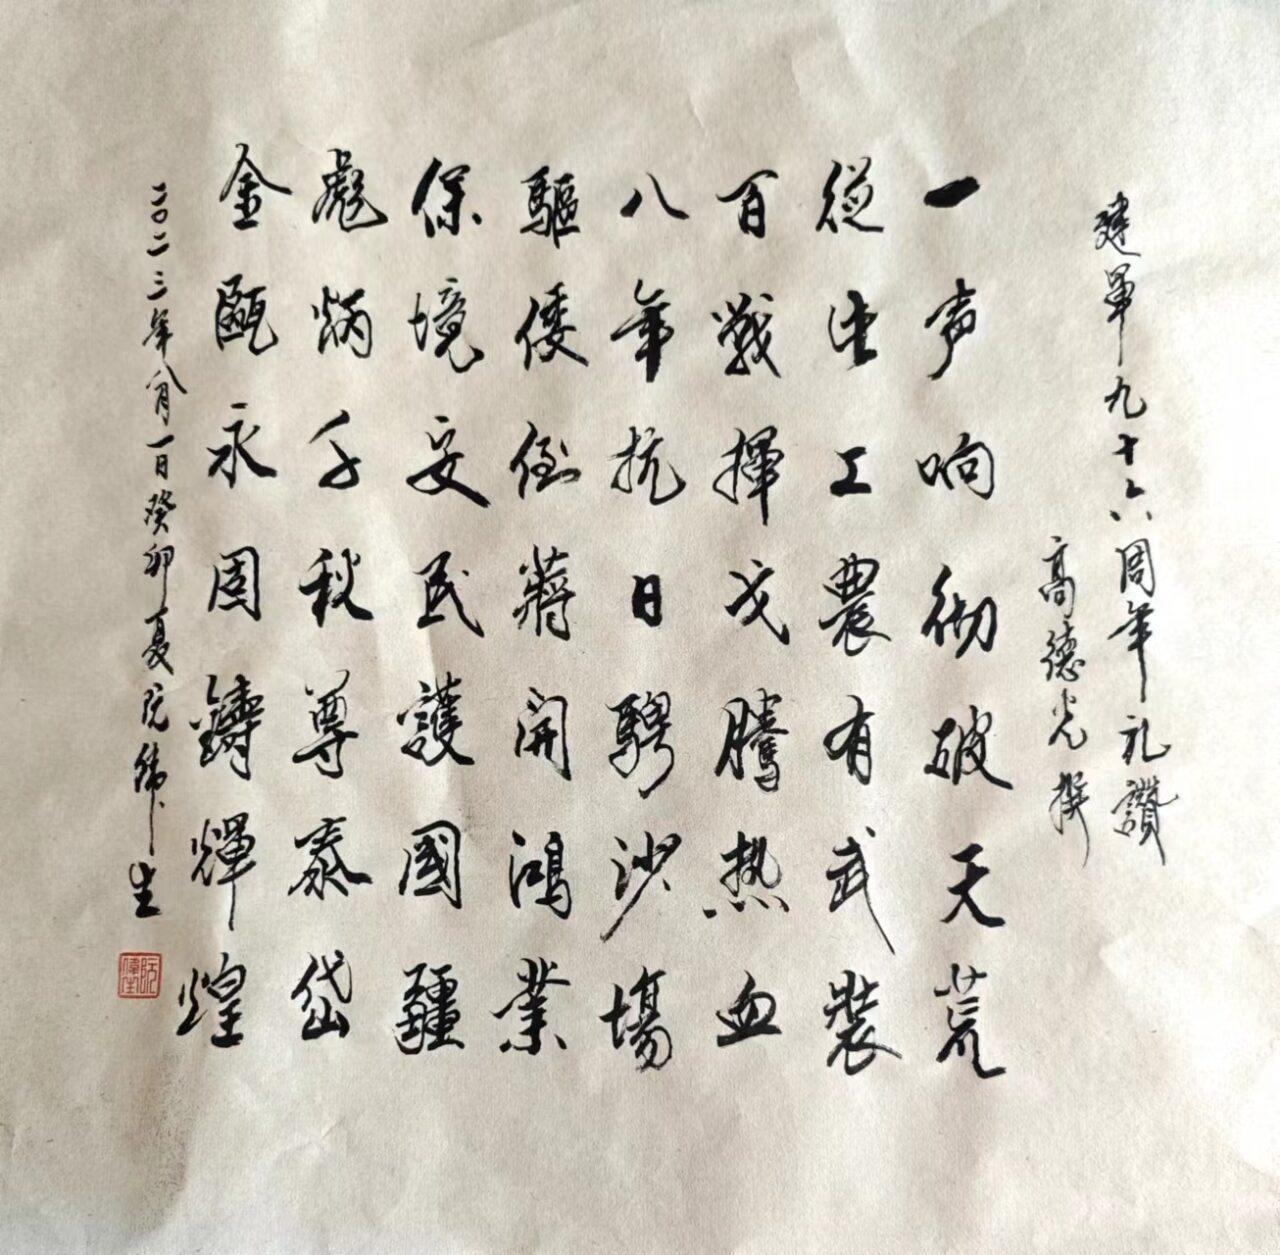 建軍九十六周年礼讚
高德光撰
一声响彻破天荒
從此工農有武裝
百戰揮戈騰热血
八年抗日騁沙場
驅倭倒蔣開鴻業
保境安民護國疆
彪炳千秋尊泰岱
金甌永固鑄輝煌
二〇二三年八月一日癸卯夏阮偉生